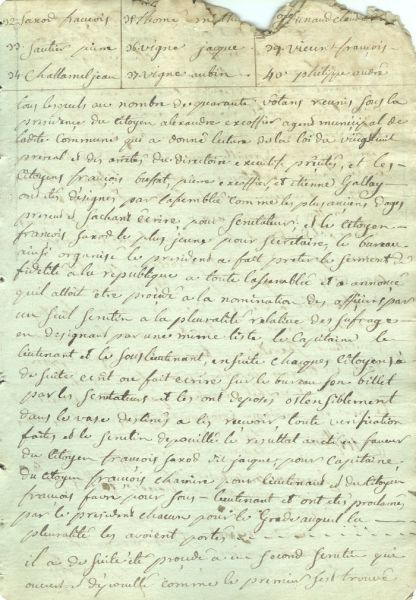 32 Saxod francois 35 thome 38
33 Sautier pierre 36 vigne jaque 39 Vieux francois
34 Challamel jean 37 vigne aubin 40 philippe andré
tous lesquels au nombre de quarante votans reunis sous la
presidence du Citoyen alexandre excoffier agent municipal de
ladite Commune qui a donné lecture de la loi du vingthuit
prerial et des arretés du directoire executif precités, et les
Citoyens françois buffet, pierre excoffier, et etienne Gallay
ont été designés par l'assemblée comme les plus anciens dages
presents sachant ecrire pour scrutateurs, et le Citoyen
francois saxod le plus jeune pour secretaire, le bureau
ainsi organisé le president a fait preter le serment de
fidelité à la republique a toute lassemblée et a annoncé
quil alloit etre procédé a la nomination des officiers par
un seul scrutin a la pluralité relative des sufrages
en designant par une meme liste le Capitaine le
lieutenant et le souslieutenant ensuite chaques Citoyens à
de suite ecrit ou fait ecrire sur le bureau son billet
par les scrutateurs et les ont deposés ostensiblement
dans le vase destiné a les recevoir, toute verification
faites et le scrutin depouillé le resultat a été en faveur
du Citoyen francois saxod dit jaques, pour Capitaine,
du Citoyen francois chamure pour lieutenant et du Citoyen
francois favre pour sous-lieutenant et ont étés proclamés
par le president chacun pour le Grade auquel la
pluralité les avoient portés
il a de suite été procédé a un second scrutin qui
ouvert et depouillé comme le premier sest trouvé